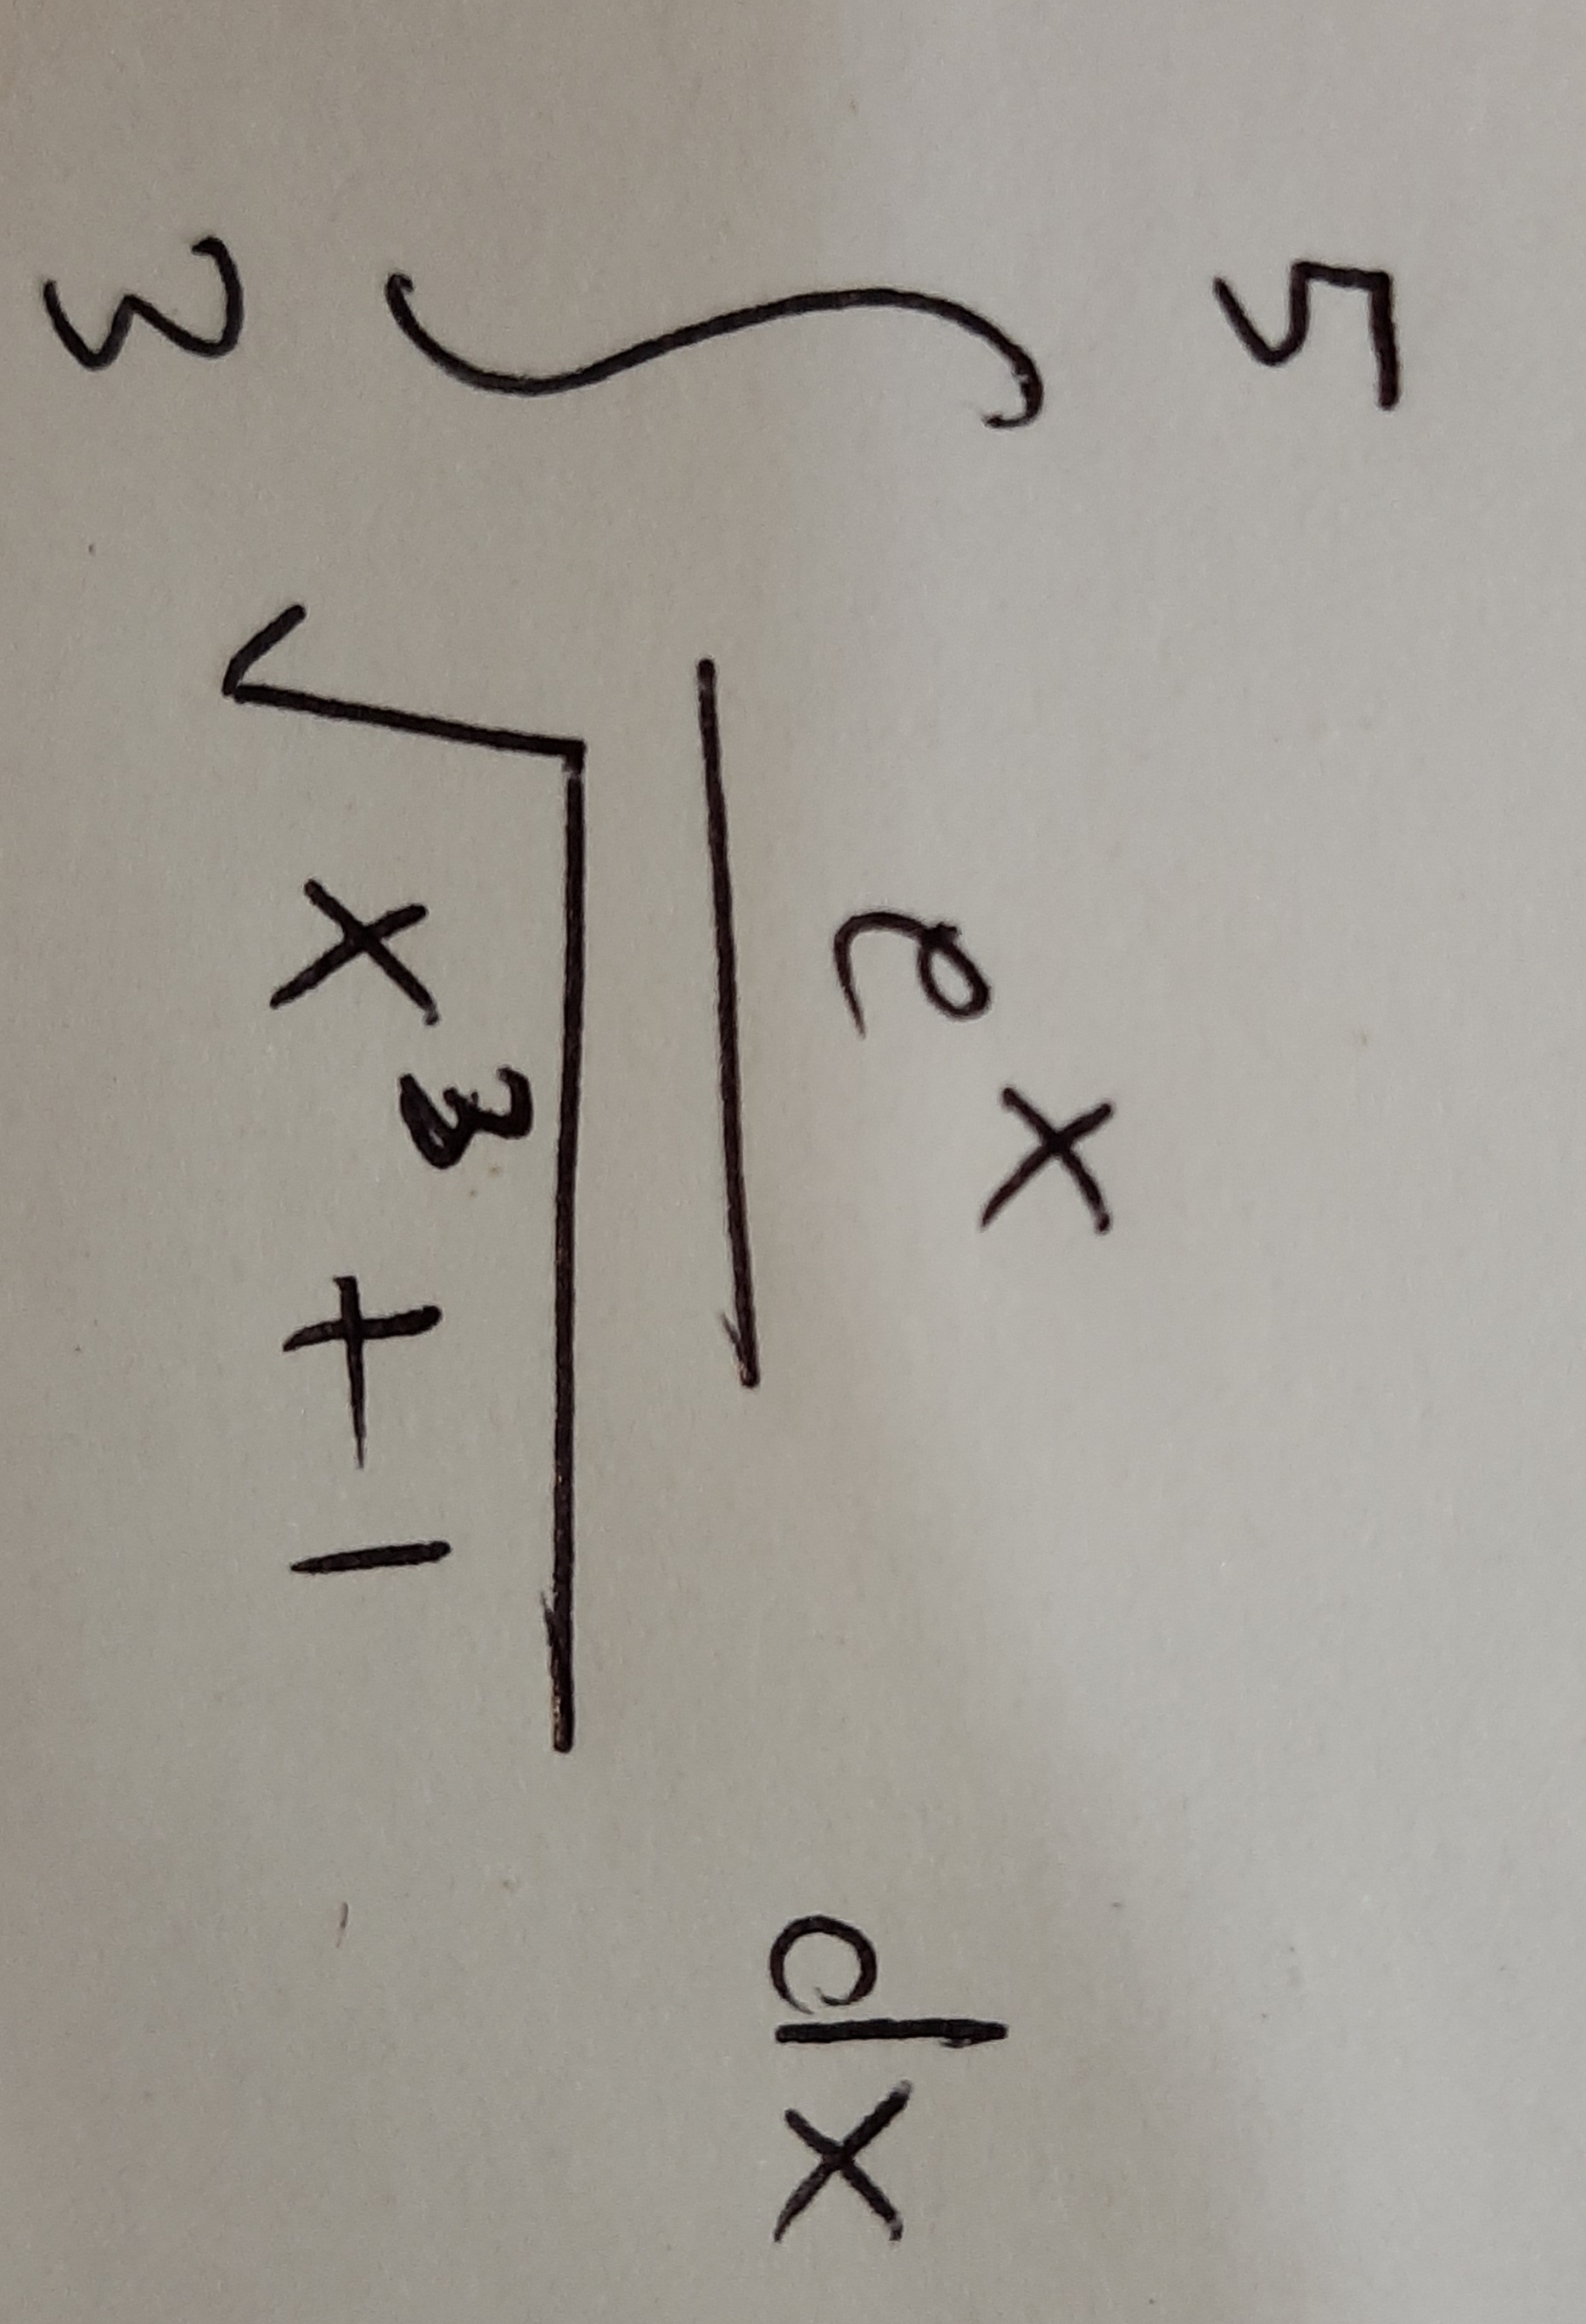 ∫₃⁵ eˣ / √(x³ + 1) dx